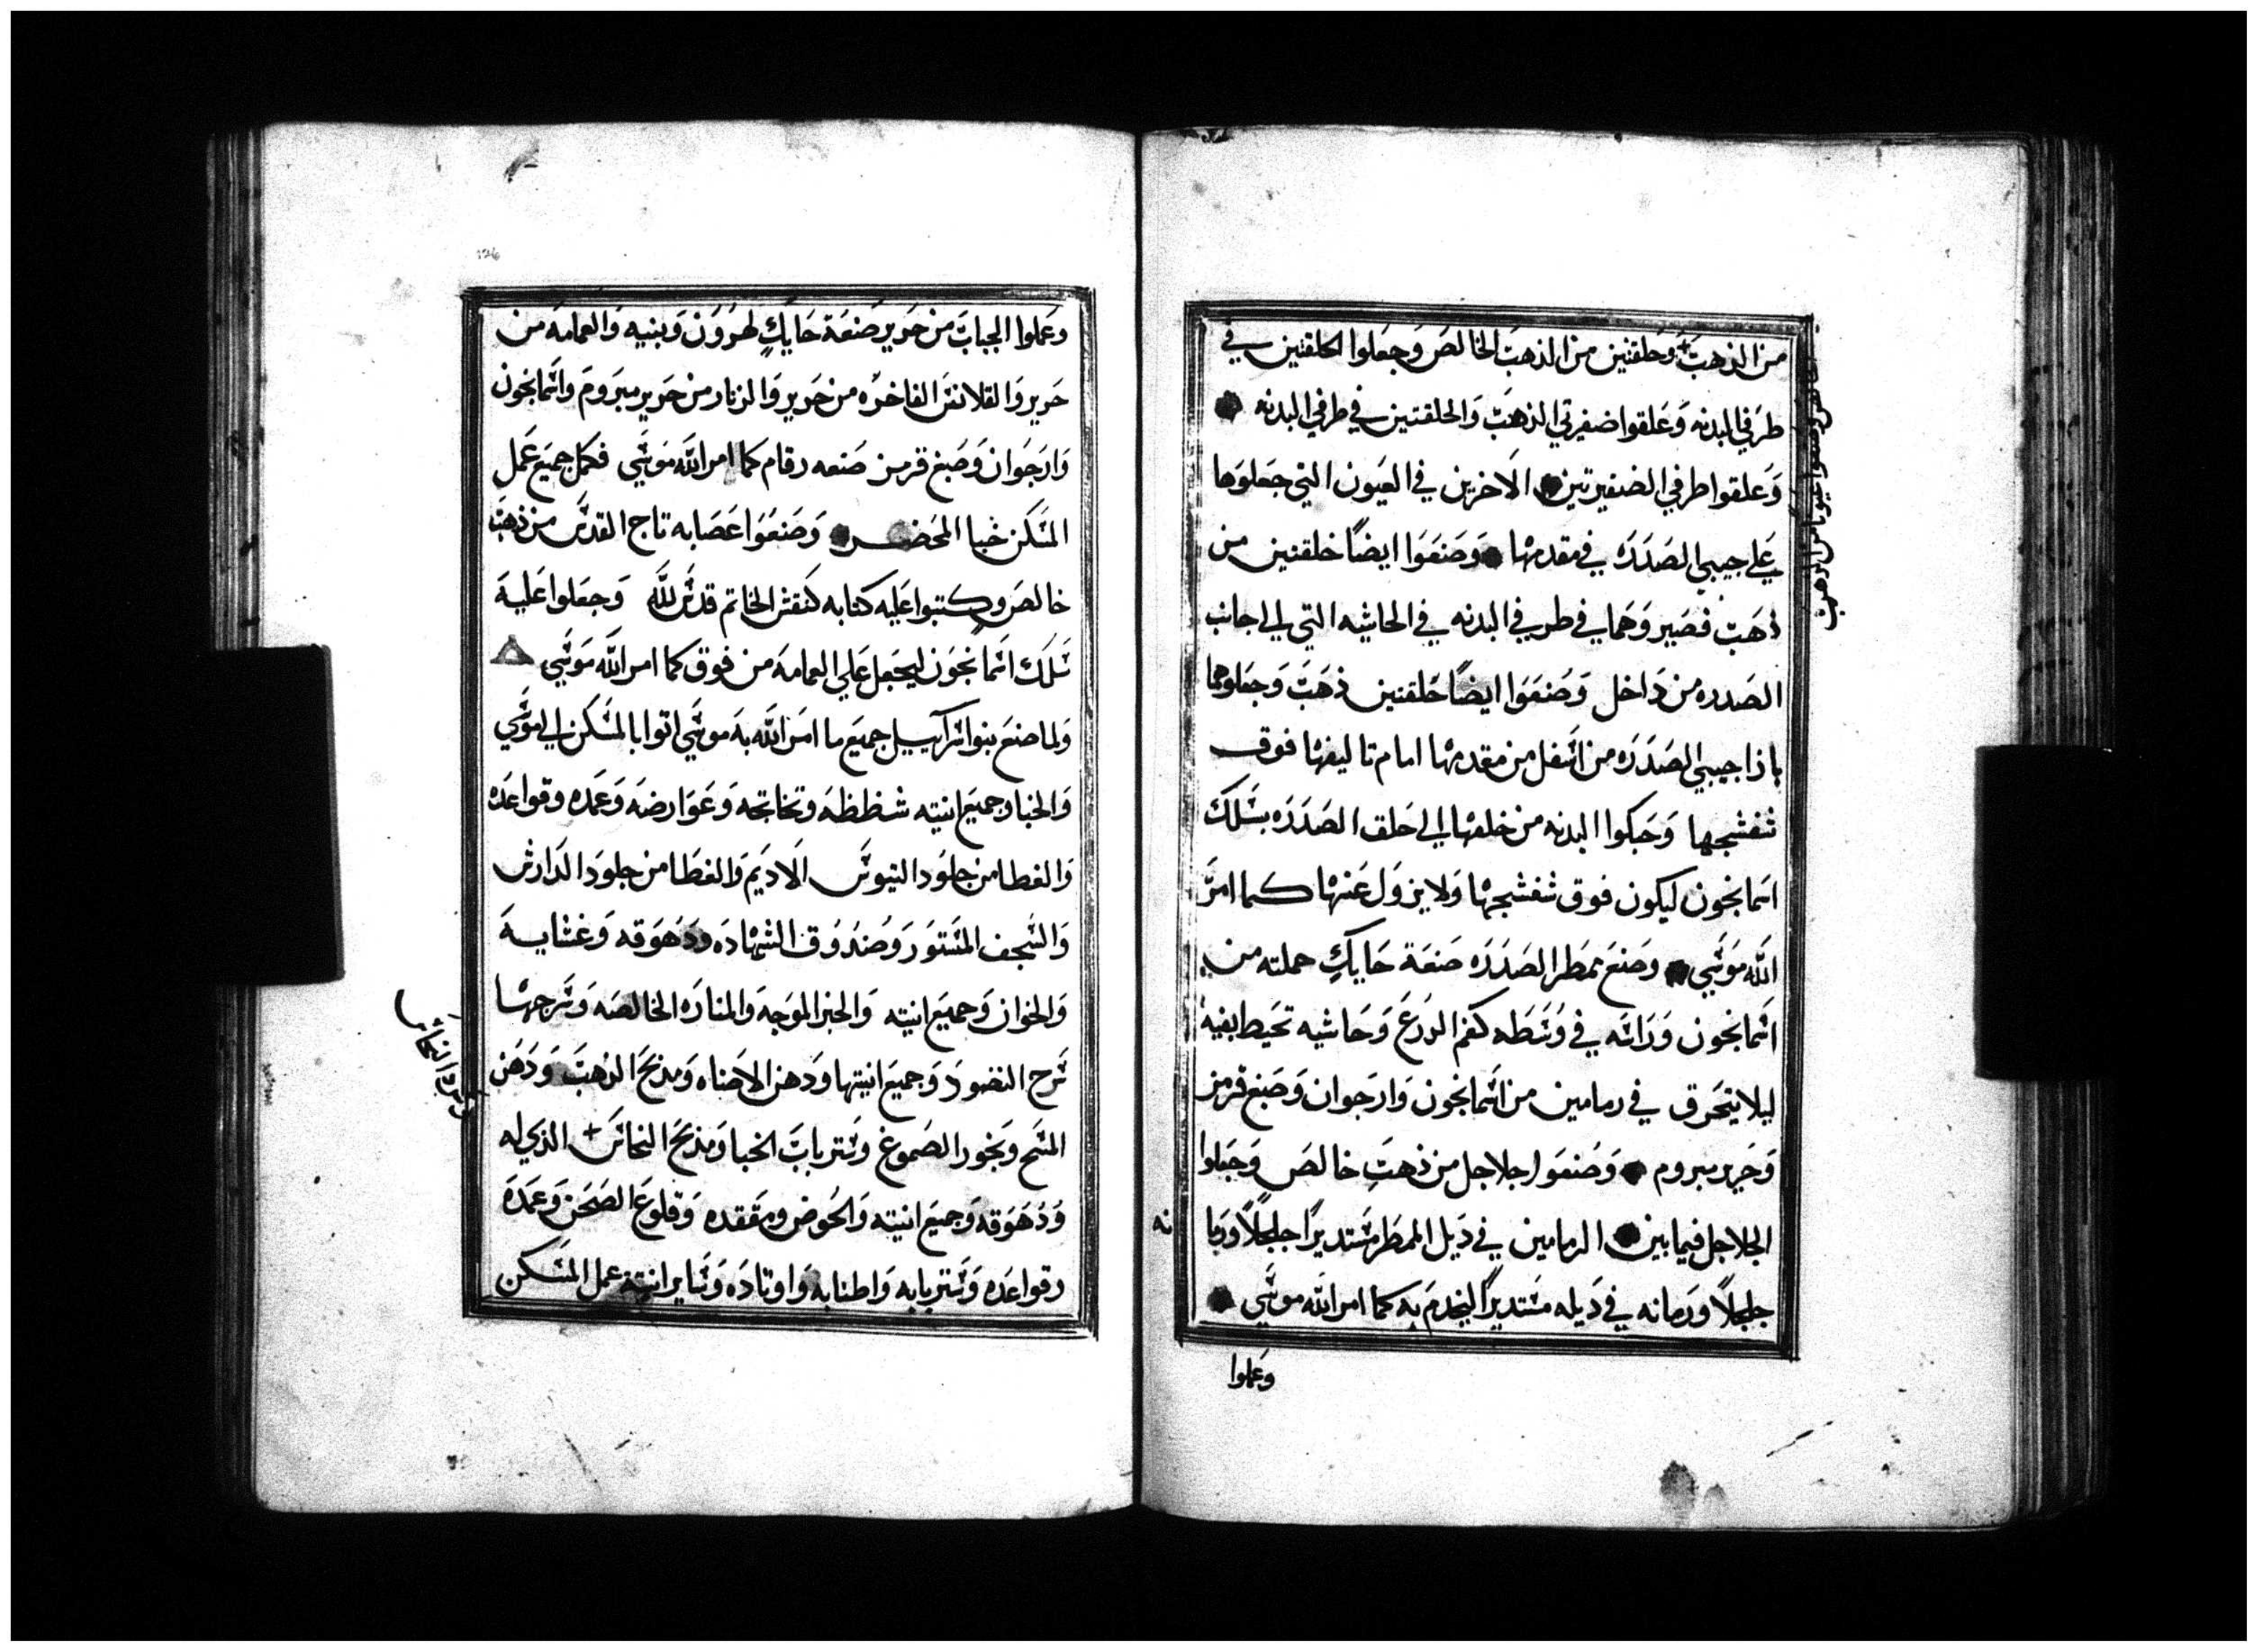 من الذهب + وحلقتين من الذهب الخالص وجعلوا الحلقتين في
طرفي البدنه وعلقوا ضفيرتي الذهب والحلقتين في طرفي البدنه
وعلقوا طرفي الضفيرتين الاخرين في العيون التي جعلوها
علي جيبي الصدره في مقدمها وصنعوا ايضًا حلقتين من
ذهب فصير وهما في طرفي البدنه في الحاشيه التي الي جانب
الصدره من داخل وصنعوا ايضًا حلقتين ذهب وجعلوهما
بازا جيبي الصدره من اسفل من مقدمها امام تاليفها فوق
شفشجها وحبكوا البدنه من حلقها الي حلق الصدره بسلك
اسمانجون ليكون فوق شفشجها ولا يزول عنها كما امر
الله موسي وصنع ممطر الصدره صنعة حايكٍ حملته من
اسمانجون وراسه في وسطه كفم الدرع وحاشيه تحيط بفيه
ليلا يتحرق في رمامين من اسمانجون وارجوان وصبغ قرمز
وحرير مبروم وصنعوا جلاجل من ذهبٍ خالص وجعلوا
الجلاجل فيما بين الرمامين في ذيل الممطر مستديرًا جلجلاً ورما
نه
جلجلاً ورمانه في ذيله مستديرًا ليخدم به كما امر الله موسي
وعملوا
وصنعوا عيونا من الذهب
وعملوا الجباب من حرير صنعة حايكٍ لهرون وبنيه والعمامه من
حرير والقلانس الفاخره من حرير والزنار من حرير مبروم واسمانجون
وارجوان وصبغ قرمز صنعه رقام كما امر الله موسي فكمل جميع عمل
المسكن خبا المحضر وصنعوا عصابه تاج القدس من ذهب
خالص وكتبوا عليه كتابه كنقش الخاتم قدس لله وجعلوا عليه
سلك اسمانجون ليجعل علي العمامه من فوق كما امر الله موسي
ولما صنع بنوا اسرآييل جميع ما امر الله به موسي اتوا بالمسكن الي موسي
والخبا وجميع انيته شظظه وتخاتجه وعوارضه وعمده وقواعده
والغطا من جلود التيوس الاديم والغطا من جلود الدارش
والسجف المستور وصندوق الشهاده ودهوقه وغشايه
والخوان وجميع انيته والخبز الموجه والمناره الخالصه وسرجها
سرج النضود وجميع انيتها ودهن الاضاه ومذبح الذهب ودهن
المسح وبخور الصموغ وستر باب الخبا ومذبح النحاس + الذي له
ودهوقه وجميع انيته والحوض ومقعده وقلوع الصحن وعمده
وقواعده وستر بابه واطنابه واوتاده وساير انيته عمل المسكن
النحاس